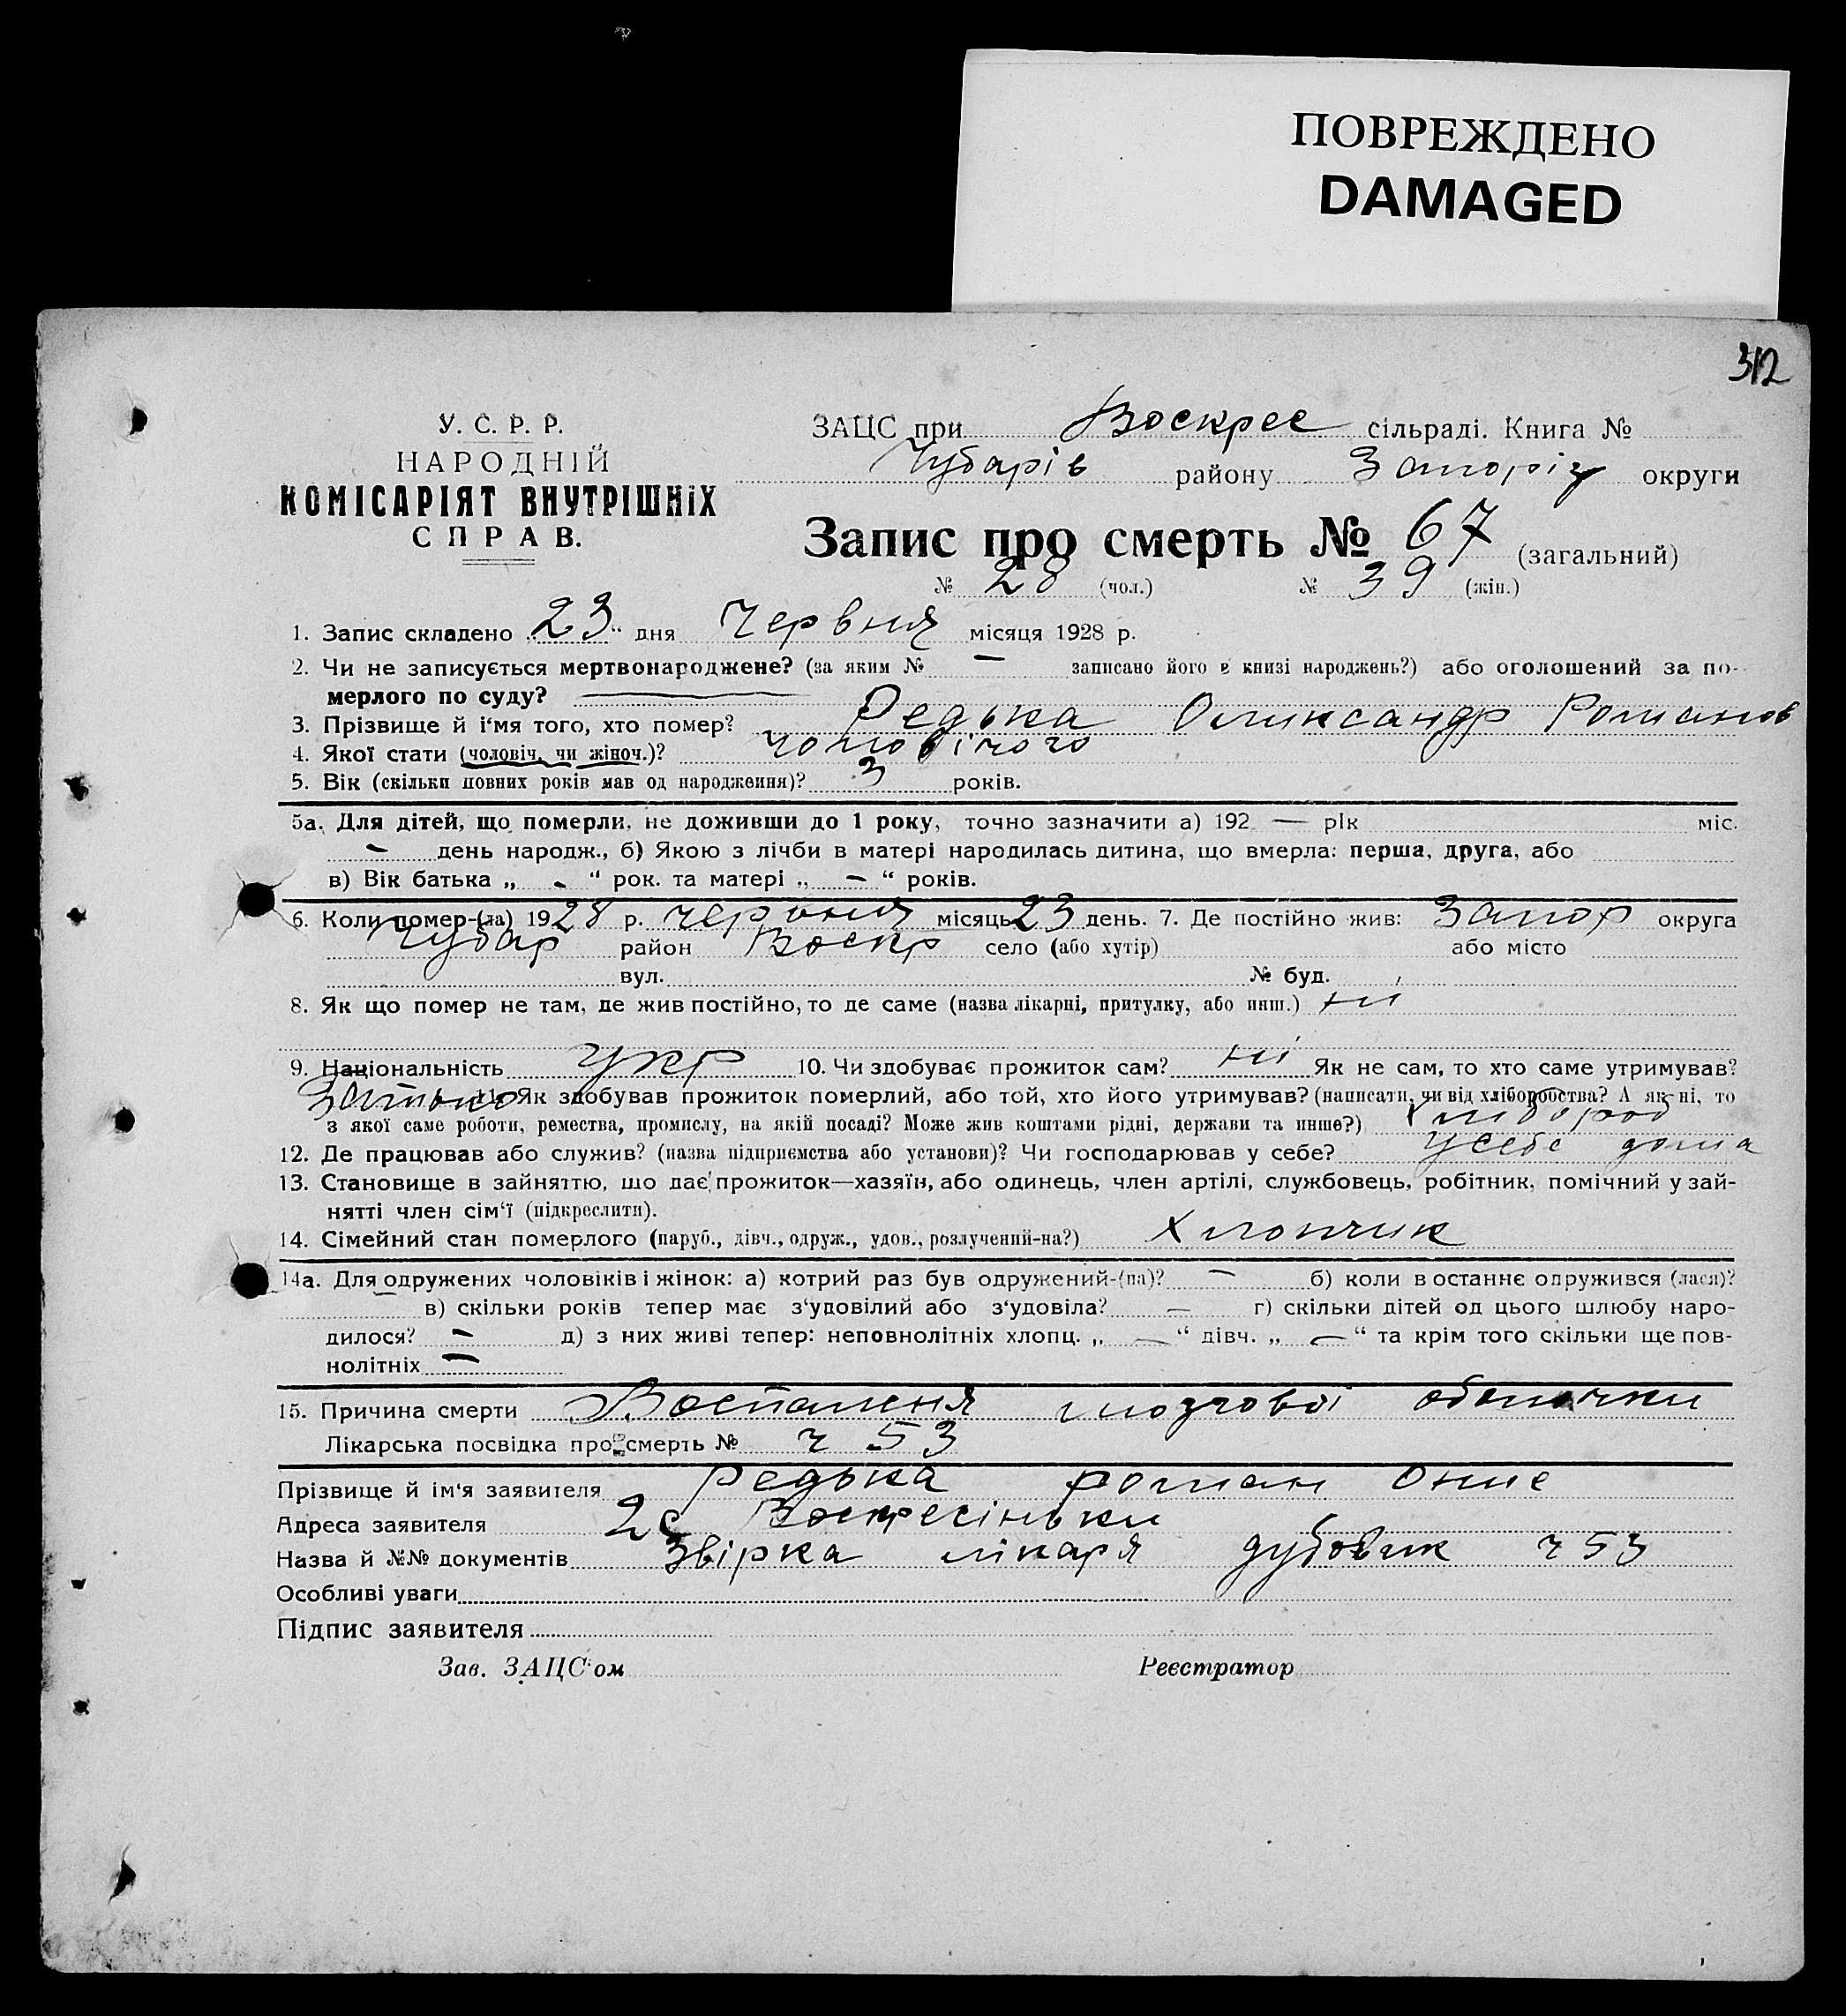 ПОВРЕЖДЕНО
DAMAGED
312
У. С. Р. Р.
НАРОДНІЙ
КОМІСАРІЯТ ВНУТРІШНІХ
СПРАВ.
ЗАЦС при Воскрес сільраді. Книга №
Чубарів району Запоріз округи
Запис про смерть № 67 (загальний)
№ 28 (чол.) № 39 (жін.)
1. Запис складено „23“ дня Червня місяця 1928 р.
2. Чи не записується мертвонароджене? (за яким № — записано його в книзі народжень?) або оголошений за по-
мерлого по суду? —
3. Прізвище й і‘мя того, хто помер? Редька Оликсандр Романов
4. Якої стати (чоловіч. чи жіноч.)? чоловічого
5. Вік (скільки повних років мав од народження)? 3 років.
5а. Для дітей, що померли, не доживши до 1 року, точно зазначити а) 192 — рік міс.
— день народж., б) Якою з лічби в матері народилась дитина, що вмерла: перша, друга, або
в) Вік батька „ - “ рок. та матері „ — “ років.
6. Коли помер-(ла) 1928 р. червня місяць 23 день. 7. Де постійно жив: Запор округа
Чубар район Воскр село (або хутір) або місто
вул. № буд.
8. Як що помер не там, де жив постійно, то де саме (назва лікарні, притулку, або инш.) ні
9. Національність укр 10. Чи здобуває прожиток сам? ні Як не сам, то хто саме утримував?
Батько 11. Як здобував прожиток померлий, або той, хто його утримував? (написати, чи від хліборобства? А як ні, то
з якої саме роботи, ремества, промислу, на якій посаді? Може жив коштами рідні, держави та инше?) Хлібороб
12. Де працював або служив? (назва підприємства або установи)? Чи господарював у себе? усебе дома
13. Становище в зайняттю, що дає прожиток—хазяїн, або одинець, член артілі, службовець, робітник, помічний у зай-
нятті член сім‘ї (підкреслити).
14. Сімейний стан померлого (паруб., дівч., одруж., удов., розлучений-на?) Хлопчик
14а. Для одружених чоловіків і жінок: а) котрий раз був одружений-(на)? — б) коли в останнє одружився (лася)?
— в) скільки років тепер має з‘удовілий або з‘удовіла? — г) скільки дітей од цього шлюбу наро-
дилося? — д) з них живі тепер: неповнолітніх хлопц. „ — “ дівч. „ — “ та крім того скільки ще пов-
нолітніх —
15. Причина смерти Воспалення мозгової оболочки
Лікарська посвідка про смерть № ч 53
Прізвище й ім‘я заявителя Редька Роман
Адреса заявителя Воскресіньки
Назва й №№ документів Звірка лікаря Дубовик ч 53
Особливі уваги
Підпис заявителя
Зав. ЗАЦС‘ом Реєстратор